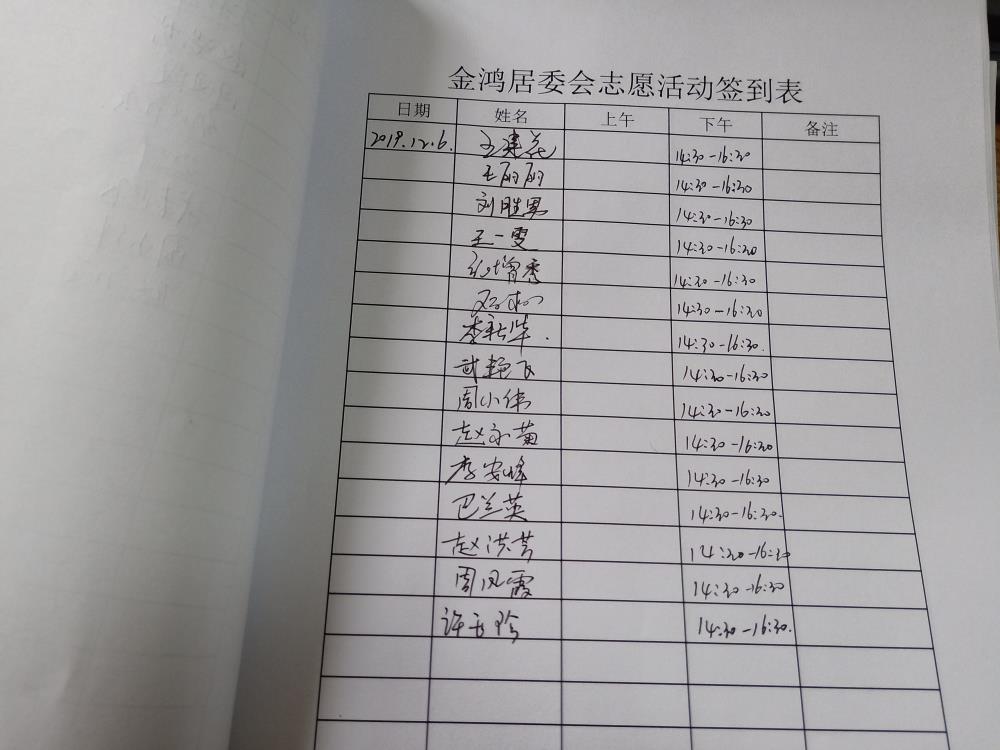 金鸿居委会志愿活动签到表
日期 姓名 上午 下午 备注
2019.12.6. 王建花 14:30-16:30
王丽丽 14:30-16:30
刘胜男 14:30-16:30
王一雯 14:30-16:30
张增秀 14:30-16:30
14:30-16:30
李新华. 14:30-16:30.
武艳飞 14:30-16:30
周小伟 14:30-16:30
赵永菊 14:30-16:30
李安峰 14:30-16:30
巴兰英 14:30-16:30.
赵洪芳 14:30-16:30
周凤霞 14:30-16:30
许玉玲 14:30-16:30.